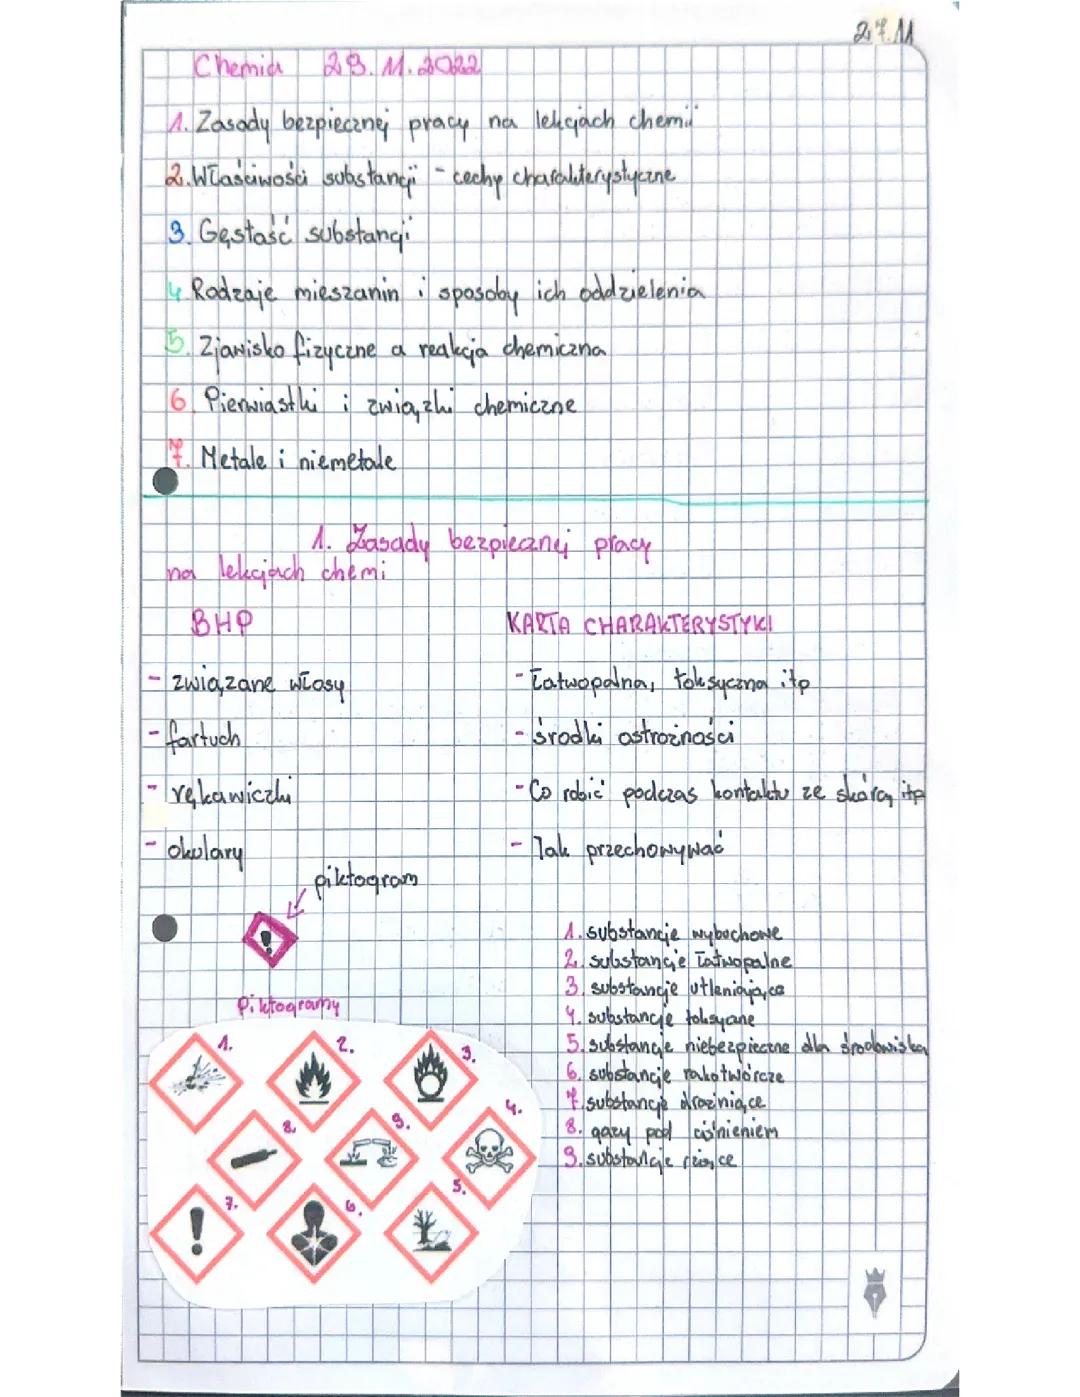 27.11
Chemia 29.11.2022
1. Zasady bezpiecznej pracy na lekcjach chemii
2. Właściwości substancji - cechy charakterystyczne
3. Gęstość substancji
4. Rodzaje mieszanin i sposoby ich oddzielenia
5. Zjawisko fizyczne a reakcja chemiczna
6. Pierwiastki i związki chemiczne
7. Metale i niemetale
1. Zasady bezpiecznej pracy
na lekcjach chemi
BHP
- związane włosy
- fartuch
- rękawiczki
- okulary
KARTA CHARAKTERYSTYKI
- Łatwopalna, toksyczna itp
- środki ostrożności
- Co robić podczas kontaktu ze skórą itp
- Jak przechowywać
piktogram
!
Piktogramy
1.
2.
3.
8.
9.
4.
7.
6.
5.
1. substancje wybuchowe
2. substancje łatwopalne
3. substancje utleniające
4. substancje toksyczne
5. substancje niebezpieczne dla środowiska
6. substancje rakotwórcze
7. substancje drażniące
8. gazy pod ciśnieniem
9. substancje rżące